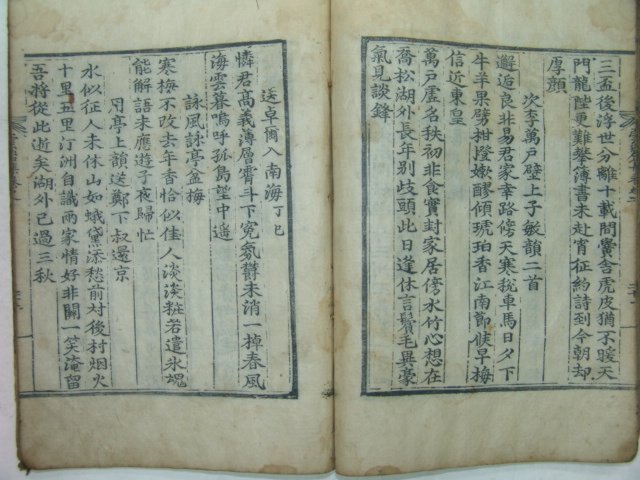 三盃後浮世分離十載間賓舍虎皮猶不暖天
門龍陛更難攀簿書未赴宵征約詩到今朝却
厚顔
次李萬戶壁上子敏韻二首
邂逅良非易君家幸路傍天寒稅車馬日夕下
牛羊果劈柑橙嫩醪傾琥珀香江南節候早梅
信近東皇
萬戶虛名秩初非食實封家居傍水竹心想在
喬松湖外長年別歧頭此日逢休言鬢毛異豪
氣見談鋒
送卓爾入南海丁巳
憐君高義薄層霄斗下冤氛欝未消一掉春風
海雲暮嗚呼孤島望中遥
詠風詠亭盆梅
寒梅不改去年香恰似佳人淡淡粧若遣氷魂
能解語未應遊子夜歸忙
用亭上韻送鄭下叔還京
水似征人未休山如蛾黛添愁前村後村烟火
十里五里汀洲自識兩家情好非關一笑淹留
吾將從此逝矣湖外已過三秋